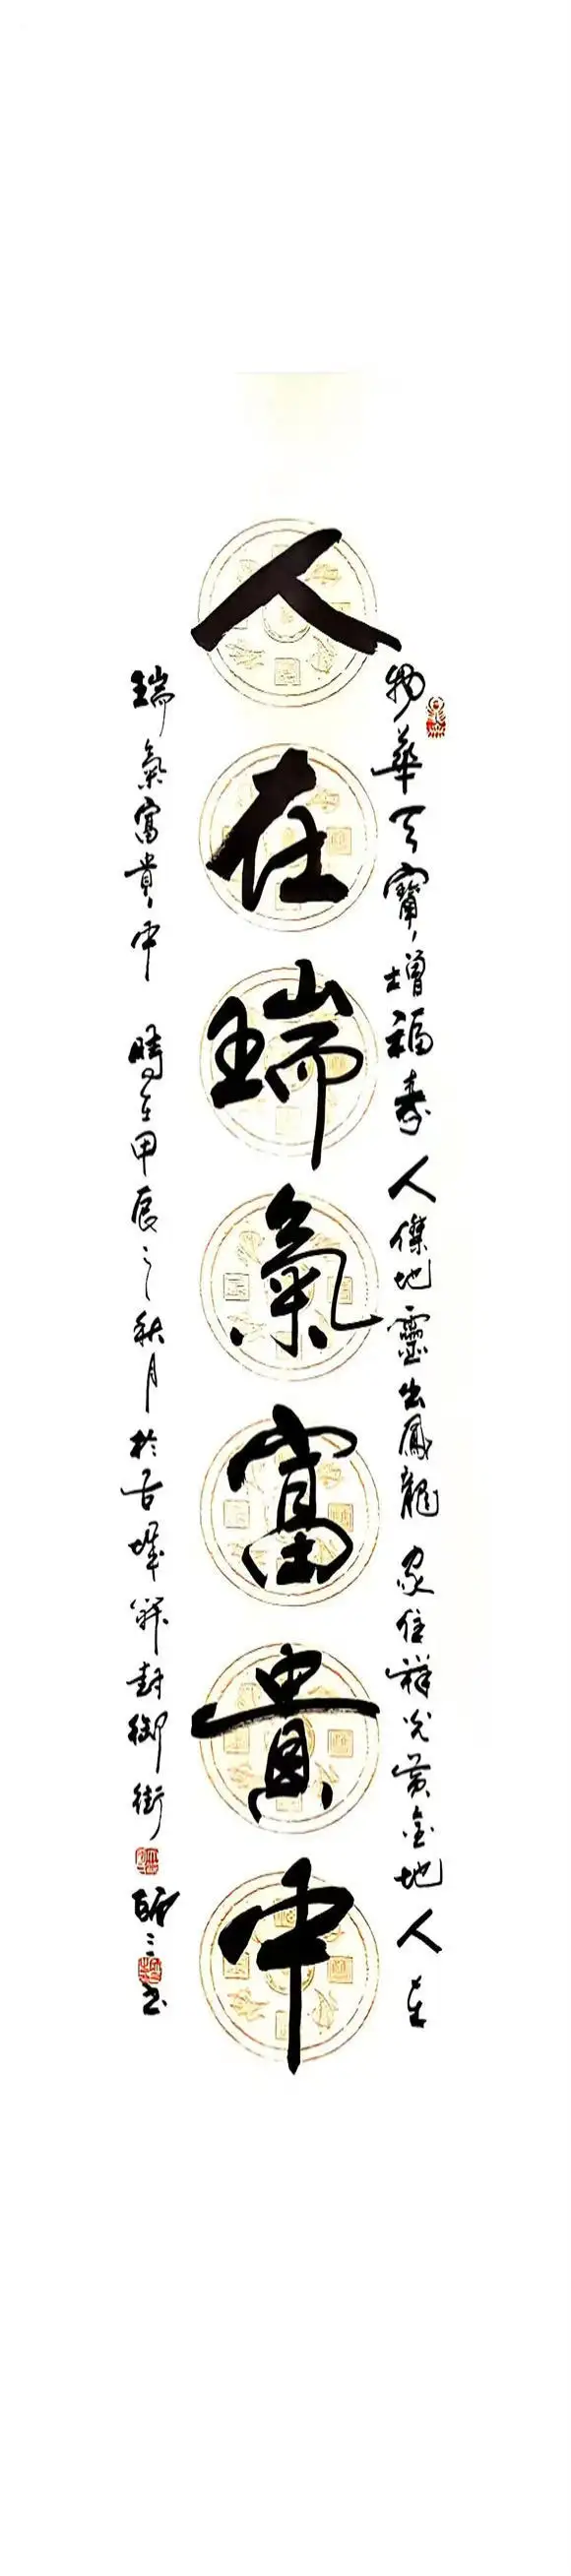 物華天寶增福壽人傑地靈出鳳龍家住祥光黃金地人在
人在瑞氣富貴中
瑞氣富貴中時在甲辰之秋月於古城開封御街
師三書